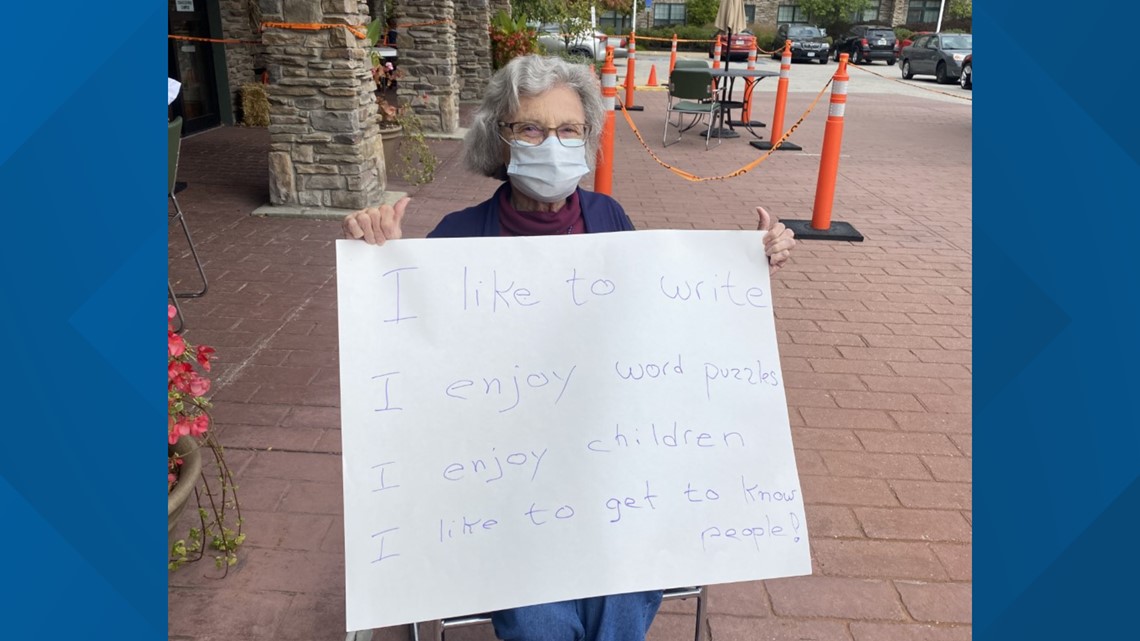 I like to write
I enjoy word puzzles
I enjoy children
I like to get to know
people!